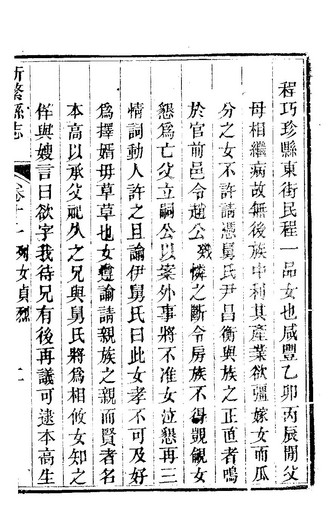 程巧珍縣東街民程一品女也咸豐乙卯丙辰閒父
母相繼病故無後族中利其產業欲彊嫁女而瓜
分之女不許請憑舅氏尹昌衡與族之正直者鳴
於官前邑令趙公 憐之斷令房族不得覬覦女
懇為亡父立嗣公以案外事將不准女泣懇再三
情詞動人許之且諭伊舅氏曰此女孝不可及好
為擇婿毋草草也女遵諭請親族之親而賢者名
本高以承父祀久之兄與舅氏將為相攸女知之
佯與嫂言曰欲字我待兄有後再議可遂本高生
新繁縣志
卷十一 列女貞烈
二